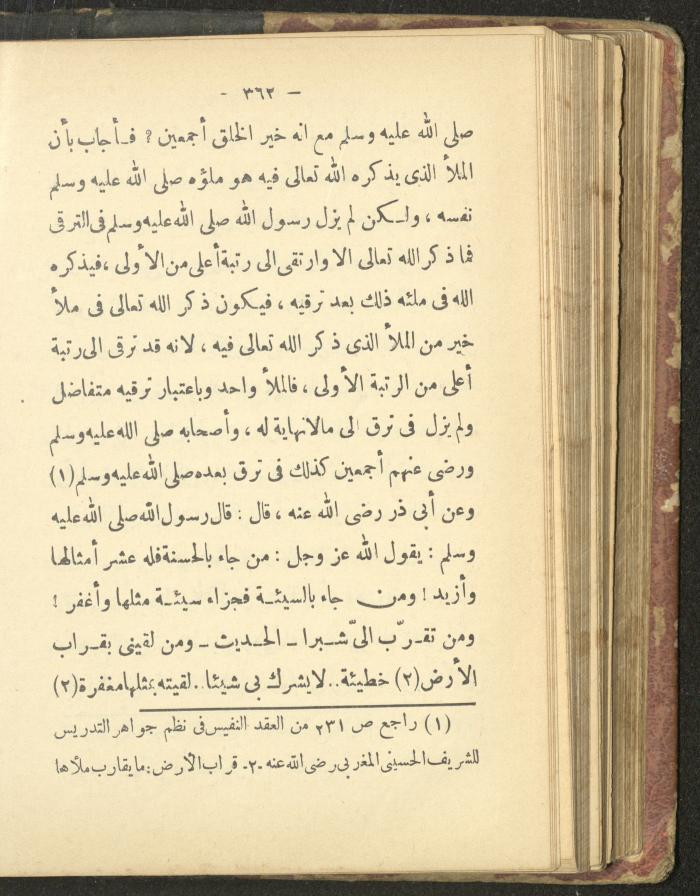 – ٣٦٢ –
صلى الله عليه وسلم مع انه خير الخلق أجمعين ؟ فأجاب بأن
الملأ الذى يذكره الله تعالى فيه هو ملؤه صلى الله عليه وسلم
نفسه ، ولكن لم يزل رسول الله صلى الله عليه وسلم فى الترقى
فما ذكر الله تعالى الا وارتقى الى رتبة أعلى من الأولى ، فيذكره
الله فى ملئه ذلك بعد ترقيه ، فيكون ذكر الله تعالى فى ملأ
خير من الملأ الذى ذكر الله تعالى فيه ، لانه قد ترقى الى رتبة
أعلى من الرتبة الأولى ، فالملأ واحد وباعتبار ترقيه متفاضل
ولم يزل فى ترق الى مالانهاية له ، وأصحابه صلى الله عليه وسلم
ورضى عنهم أجمعين كذلك فى ترق بعده صلى الله عليه وسلم (١)
وعن أبى ذر رضى الله عنه ، قال : قال رسول الله صلى الله عليه
وسلم : يقول الله عز وجل : من جاء بالحسنة فله عشر أمثالها
وأزيد ! ومن جاء بالسيئة فجزاء سيئة مثلها وأغفر !
ومن تقرّب الىّ شبرا ـ الحديث ـ ومن لقينى بقراب
الأرض (٢) خطيئة .. لايشرك بى شيئا .. لقيته بمثلها مغفرة (٢)
(١) راجع ص ٢٣١ من العقد النفيس فى نظم جواهر التدريس
للشريف الحسينى المغربى رضى الله عنه ـ٢ـ قراب الأرض : ما يقارب ملأها